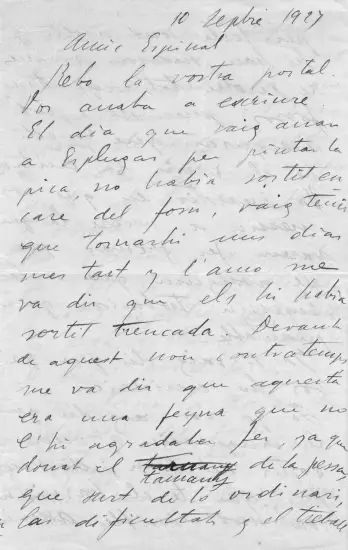 10 Septbre 1927
Amic Espinal
Rebo la vostra postal.
Vos anaba a escriure.
El dia que vaig anar
a Esplugas per pintar la
pica, no habia sortit en
care del forn, vaig tenir
que tornarhi uns dias
mes tart y l'amo me
va dir que els hi habia
sortit trencada. Devant
de aquest nou contratemps
me va dir que aquesta
era una feyna que no
l'hi agradaba fer, ja que
donat el tamany de la pessa,
que surt de lo ordinari,
las dificultats y el treball